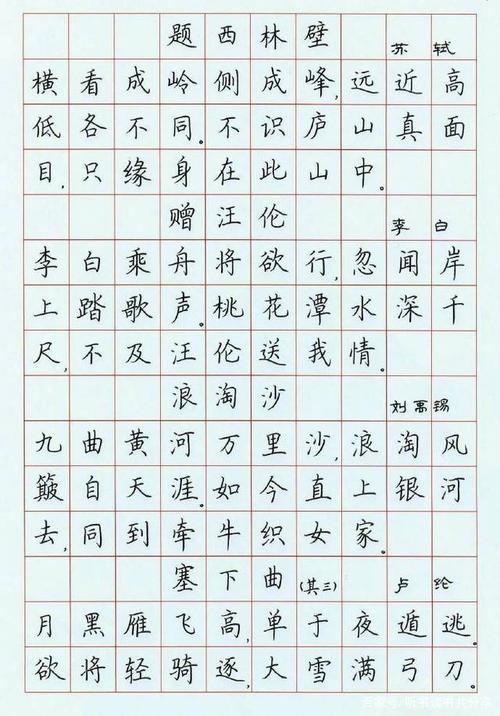 题西林壁 苏轼
横看成岭侧成峰,远近高
低各不同。不识庐山真面
目,只缘身在此山中。
赠汪伦 李白
李白乘舟将欲行,忽闻岸
上踏歌声。桃花潭水深千
尺,不及汪伦送我情。
浪淘沙 刘禹锡
九曲黄河万里沙,浪淘风
簸自天涯。如今直上银河
去,同到牵牛织女家。
塞下曲(其三) 卢纶
月黑雁飞高,单于夜遁逃。
欲将轻骑逐,大雪满弓刀。